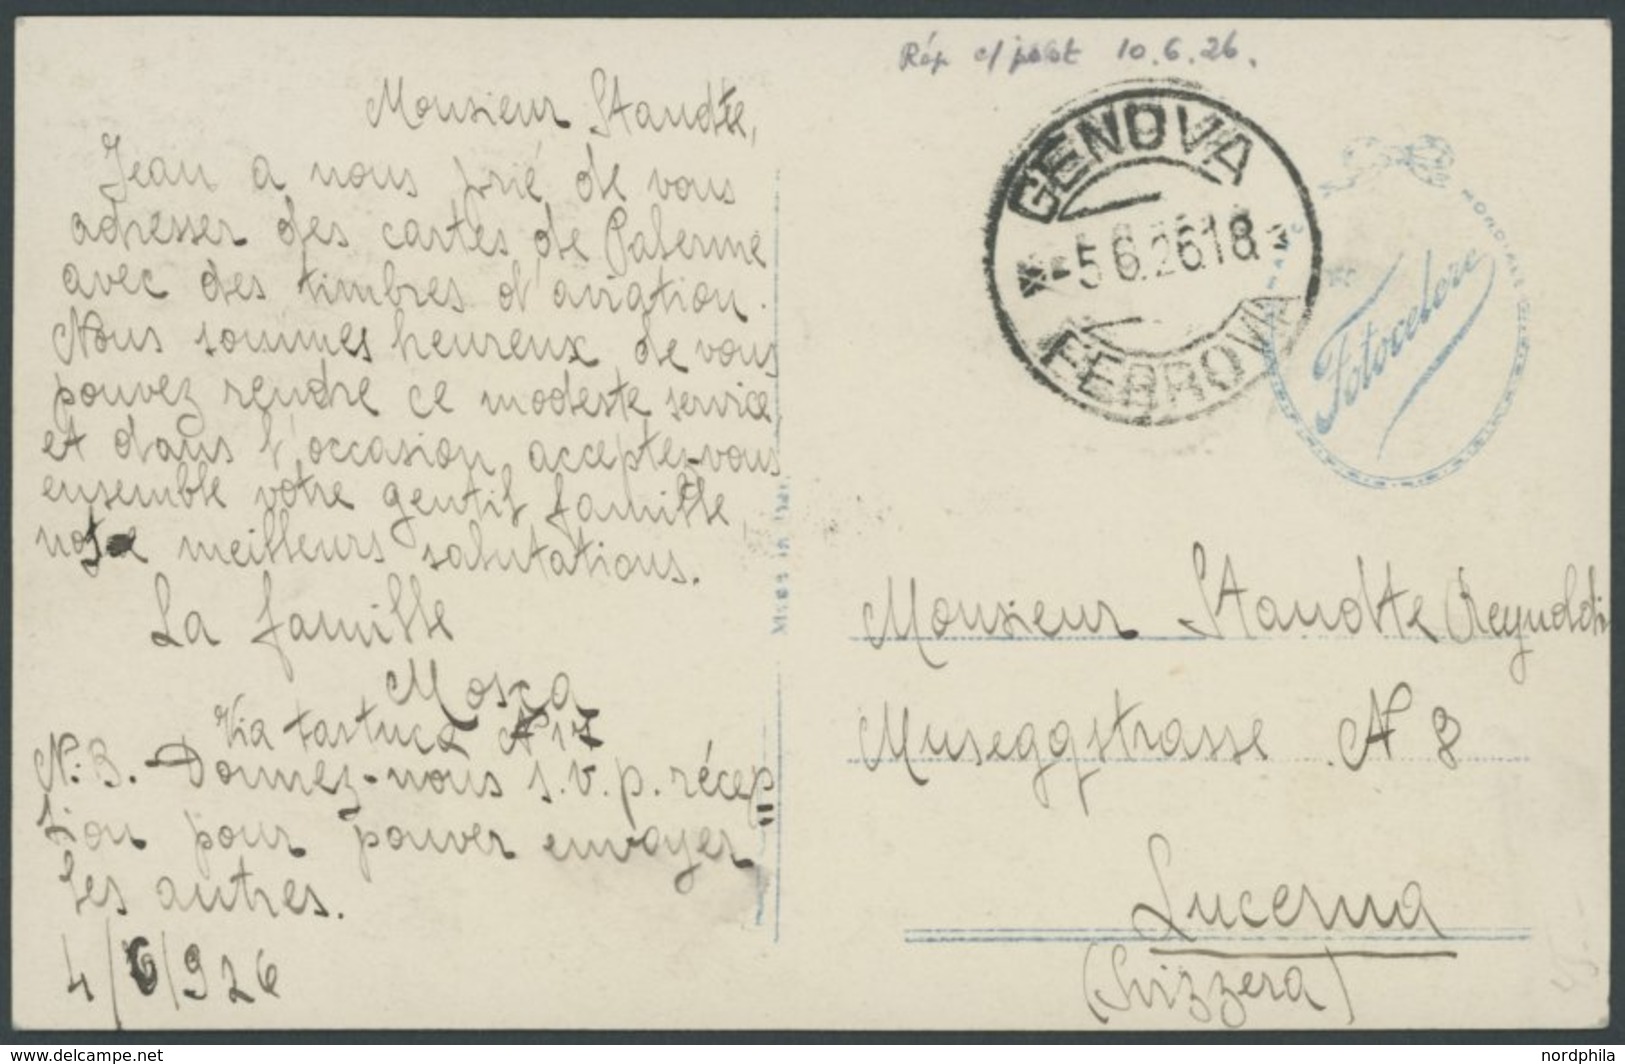 Monsieur Staudte,
Jean a nous prié de vous
adresser des cartes de Palerme
avec des timbres d'aviation.
Nous sommes heureux de vous
pouvez rendre ce modeste service
et dans l'occasion acceptez-vous
ensemble votre gentil famille
notre meilleurs salutations.
La famille
Mosca
Via Tartuca N 17
N. B. - Donnez-nous s.v.p. récep
tion pour pouver envoyer
les autres.
4/6/926
Rép c/ post 10.6.26.
GENOVA
-5 6.26.18
FERROVIA
Fotocelere
Monsieur Staudte Reynoldi
Museggstrasse N 8
Lucerna
(Svizzera)
www.delcampe.net
nordphila